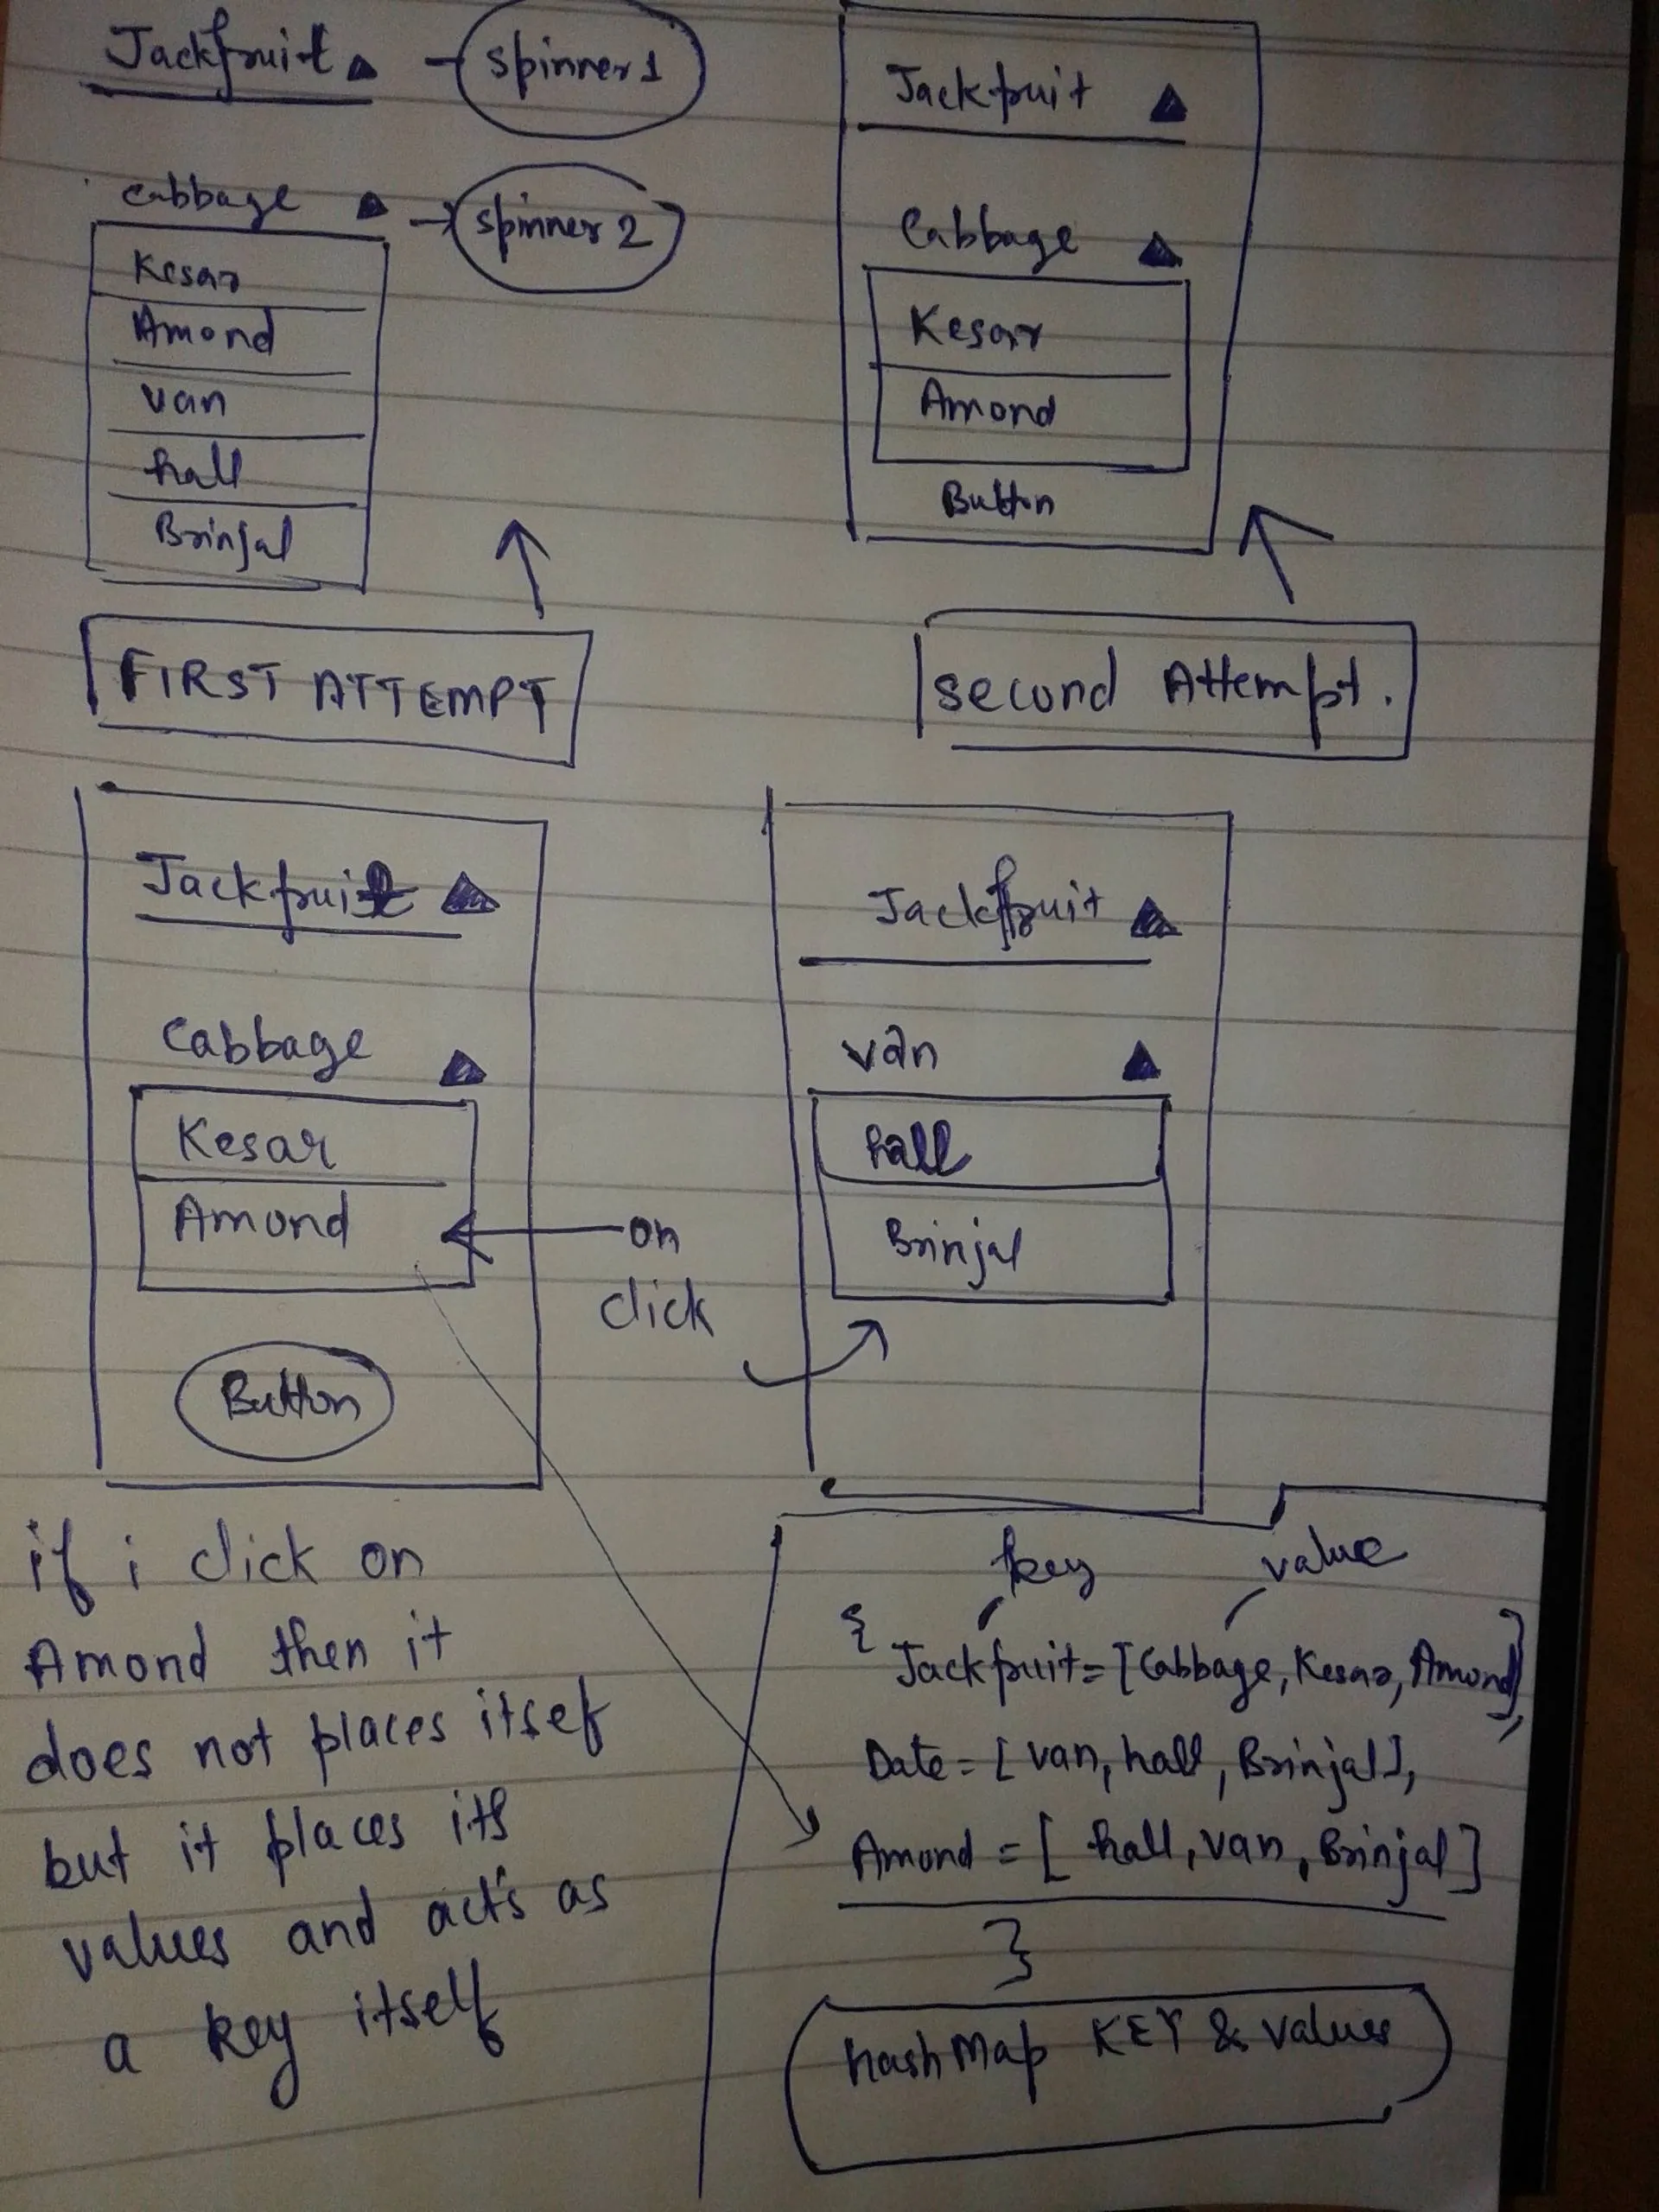 Jackfruit
spinner 1
Cabbage
spinner 2
Kesar
Amond
van
hall
Brinjal
FIRST ATTEMPT
Jackfruit
Cabbage
Kesar
Amond
Button
second Attempt.
Jackfruit
Cabbage
Kesar
Amond
Button
on
click
Jackfruit
van
hall
Brinjal
if i click on
Amond then it
does not places itself
but it places its
values and acts as
a key itself
key value
{ Jackfruit=[Cabbage, Kesar, Amond],
Date=[van, hall, Brinjal],
Amond=[hall, van, Brinjal]
}
hashMap KEY & values